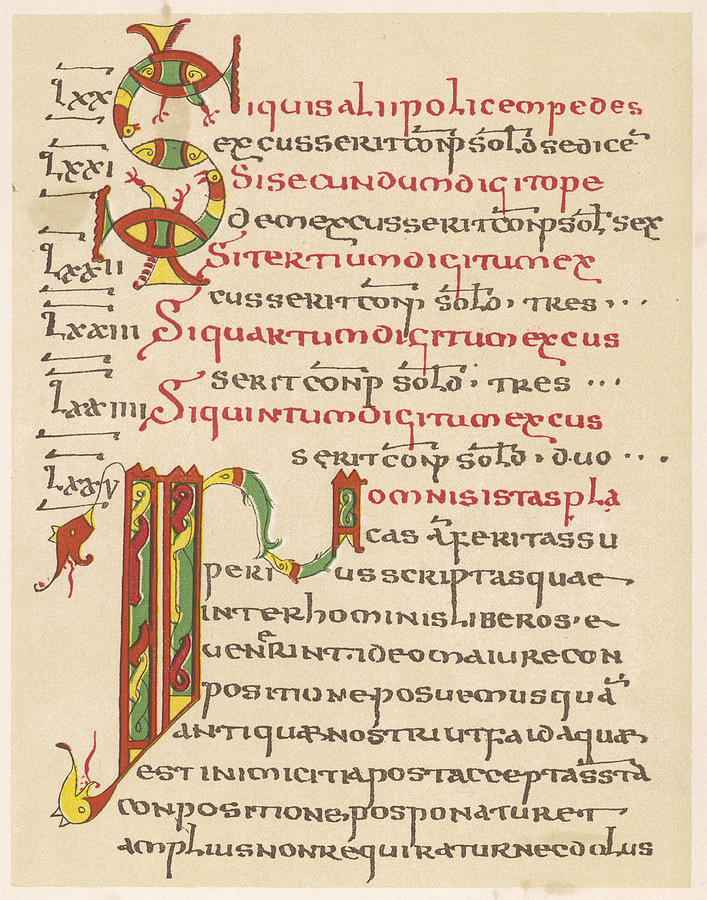 LXX SIQUISALIIPOLICEMPEDES
EXCUSSERITCON̄P SOL̄D SEDICĒ
LXXI SISECUNDUMDIGITOPE
DEMEXCUSSERITCON̄P SOL̄ SEX
LXXII SITERTIUMDIGITUMEX
CUSSERITCON̄P SOL̄D, TRES ...
LXXIII SIQUARTUMDIGITUMEXCUS
SERITCON̄P SOL̄D; TRES ...
LXXIIII SIQUINTUMDIGITUMEXCUS
SERITCON̄P SOL̄D, DUO ...
LXXV INOMNISISTASPLA
CAS Ā FERITASSU
PERIUSSCRIPTASQUAE
INTERHOMINISLIBEROS,E
UENERINT.IDEOMAIURECON
POSITIONEPOSUEMUSQUĀ
ANTIQUAENOSTRIUTFAIDAQUAE
ESTINIMICITIAPOSTACCEPTĀSSTĀ
CONPOSITIONE,POSPONATURET
AMPLIUSNONREQUIRATURNECDOLUS